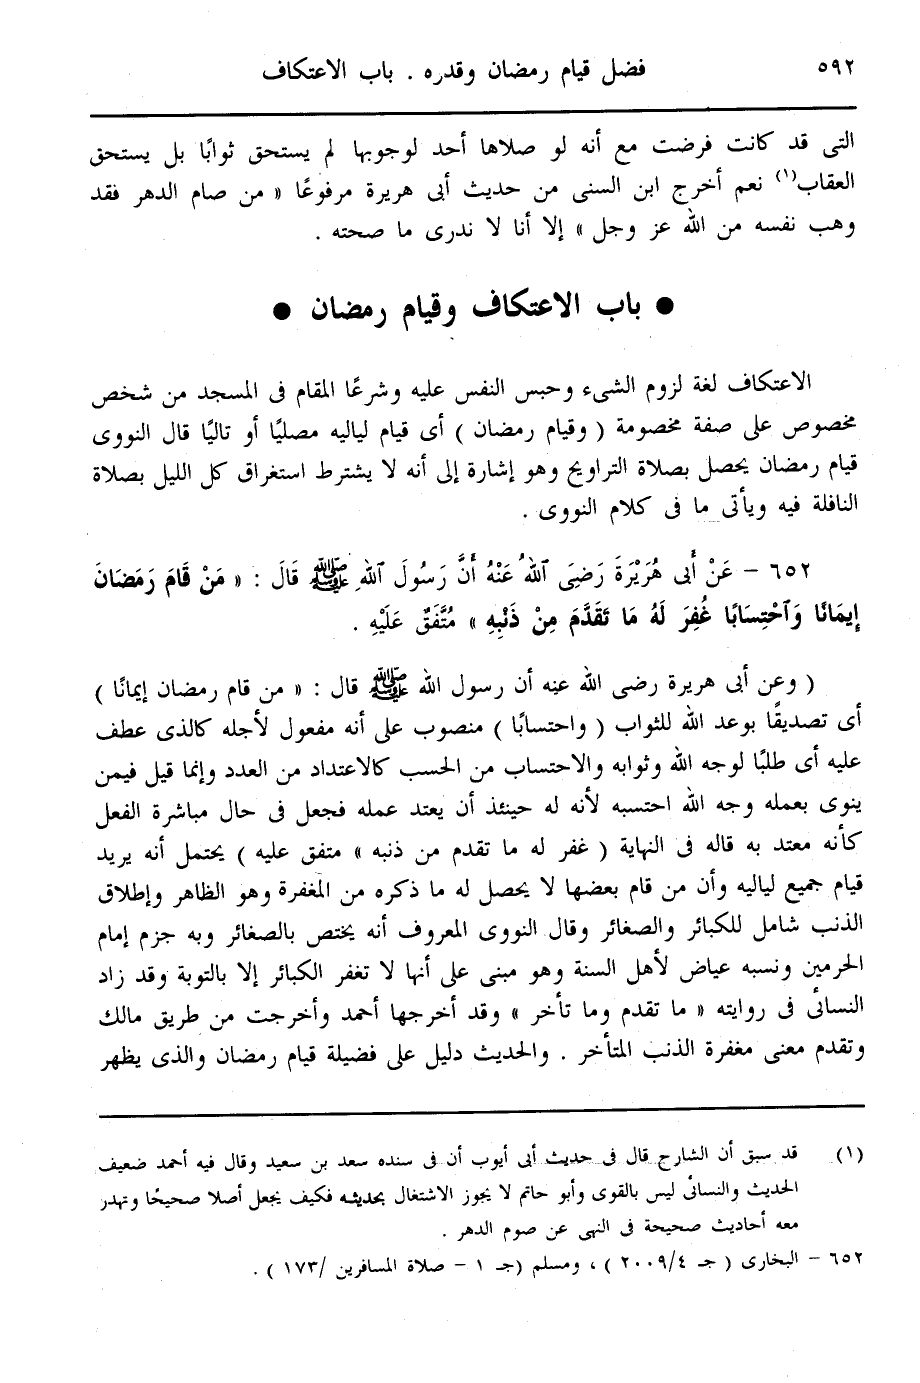 ٥٩٢
فضل قيام رمضان وقدره . باب الاعتكاف
التى قد كانت فرضت مع أنه لو صلاها أحد لوجوبها لم يستحق ثوابًا بل يستحق
العقاب(١) نعم أخرج ابن السنى من حديث أبى هريرة مرفوعًا « من صام الدهر فقد
وهب نفسه من الله عز وجل » إلا أنا لا ندرى ما صحته .
● باب الاعتكاف وقيام رمضان ●
الاعتكاف لغة لزوم الشىء وحبس النفس عليه وشرعًا المقام فى المسجد من شخص
مخصوص على صفة مخصومة ( وقيام رمضان ) أى قيام لياليه مصليًا أو تاليًا قال النووى
قيام رمضان يحصل بصلاة التراويح وهو إشارة إلى أنه لا يشترط استغراق كل الليل بصلاة
النافلة فيه ويأتى ما فى كلام النووى .
٦٥٢ – عَنْ أَبِى هُرَيْرَةَ رَضِىَ ٱللهُ عَنْهُ أَنَّ رَسُولَ ٱللهِ ﷺ قَالَ : « مَنْ قَامَ رَمَضَانَ
إِيمَانًا وَٱحْتِسَابًا غُفِرَ لَهُ مَا تَقَدَّمَ مِنْ ذَنْبِهِ » مُتَّفَقٌ عَلَيْهِ .
( وعن أبى هريرة رضى الله عنه أن رسول الله ﷺ قال : « من قام رمضان إيمانًا )
أى تصديقًا بوعد الله للثواب ( واحتسابًا ) منصوب على أنه مفعول لأجله كالذى عطف
عليه أى طلبًا لوجه الله وثوابه والاحتساب من الحسب كالاعتداد من العدد وإنما قيل فيمن
ينوى بعمله وجه الله احتسبه لأنه له حينئذ أن يعتد عمله فجعل فى حال مباشرة الفعل
كأنه معتد به قاله فى النهاية ( غفر له ما تقدم من ذنبه » متفق عليه ) يحتمل أنه يريد
قيام جميع لياليه وأن من قام بعضها لا يحصل له ما ذكره من المغفرة وهو الظاهر وإطلاق
الذنب شامل للكبائر والصغائر وقال النووى المعروف أنه يختص بالصغائر وبه جزم إمام
الحرمين ونسبه عياض لأهل السنة وهو مبنى على أنها لا تغفر الكبائر إلا بالتوبة وقد زاد
النسائى فى روايته « ما تقدم وما تأخر » وقد أخرجها أحمد وأخرجت من طريق مالك
وتقدم معنى مغفرة الذنب المتأخر . والحديث دليل على فضيلة قيام رمضان والذى يظهر
(١) قد سبق أن الشارح قال فى حديث أبى أيوب أن فى سنده سعد بن سعيد وقال فيه أحمد ضعيف
الحديث والنسائى ليس بالقوى وأبو حاتم لا يجوز الاشتغال بحديثه فكيف يجعل أصلا صحيحًا وتهدر
معه أحاديث صحيحة فى النهى عن صوم الدهر .
٦٥٢ – البخارى ( جـ ٤/٢٠٠٩ ) ، ومسلم (جـ ١ – صلاة المسافرين /١٧٣ ) .